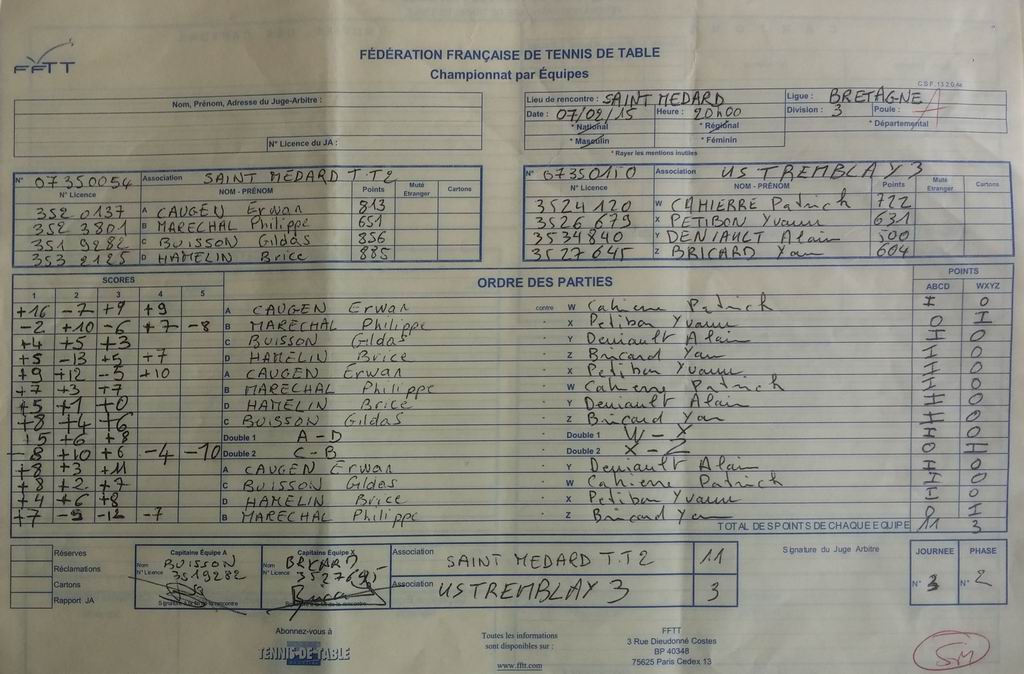 FFTT
FÉDÉRATION FRANÇAISE DE TENNIS DE TABLE
Championnat par Équipes
C.S.F. 13.2.0.4a
Nom, Prénom, Adresse du Juge-Arbitre :
N° Licence du JA :
Lieu de rencontre : SAINT MEDARD Ligue : BRETAGNE
Date : 07/02/15 Heure : 20h00 Division : 3 Poule : A
* National * Régional * Départemental
* Masculin * Féminin
* Rayer les mentions inutiles
N° 07350054 Association SAINT MEDARD T.T2
N° Licence NOM - PRÉNOM Points Muté Etranger Cartons
352 0137 A CAUGEN Erwan 813
352 3801 B MARECHAL Philippe 651
351 9282 C BUISSON Gildas 856
353 2125 D HAMELIN Brice 885
N° 07350110 Association US TREMBLAY 3
N° Licence NOM - PRÉNOM Points Muté Etranger Cartons
3524120 W CAHIERRE Patrick 722
3526679 X PETIBON Yvann 631
3534840 Y DENIAULT Alain 500
3527645 Z BRICARD Yan 604
SCORES ORDRE DES PARTIES POINTS
1 2 3 4 5 ABCD WXYZ
+16 -7 +9 +9 A CAUGEN Erwan contre W Cahierre Patrick I 0
-2 +10 -6 +7 -8 B MARECHAL Philippe - X Petibon Yvann 0 I
+4 +5 +3 C BUISSON Gildas - Y Deniault Alain I 0
+5 -13 +5 +7 D HAMELIN Brice - Z Bricard Yan I 0
+9 +12 -5 +10 A CAUGEN Erwan - X Petibon Yvann I 0
+7 +3 +7 B MARECHAL Philippe - W Cahierre Patrick I 0
+5 +1 +0 D HAMELIN Brice - Y Deniault Alain I 0
+8 +4 +6 C BUISSON Gildas - Z Bricard Yan I 0
+5 +6 +8 Double 1 A - D - Double 1 W - X I 0
-8 +10 +6 -4 -10 Double 2 C - B - Double 2 X - Z 0 I
+8 +3 +11 A CAUGEN Erwan - Y Deniault Alain I 0
+8 +2 +7 C BUISSON Gildas - W Cahierre Patrick I 0
+4 +6 +8 D HAMELIN Brice - X Petibon Yvann I 0
+7 -9 -12 -7 B MARECHAL Philippe - Z Bricard Yan 0 I
TOTAL DES POINTS DE CHAQUE EQUIPE 11 3
Réserves
Réclamations
Cartons
Rapport JA
Capitaine Équipe A
Nom BUISSON
N° Licence 3519282
Capitaine Équipe X
Nom BRICARD
N° Licence
Association SAINT MEDARD T.T2 11
Association US TREMBLAY 3 3
Signature du Juge Arbitre
JOURNEE PHASE
N° 3 N° 2
Abonnez-vous à
TENNIS DE TABLE
Toutes les informations
sont disponibles sur :
www.fftt.com
FFTT
3 Rue Dieudonné Costes
BP 40348
75625 Paris Cedex 13
SM